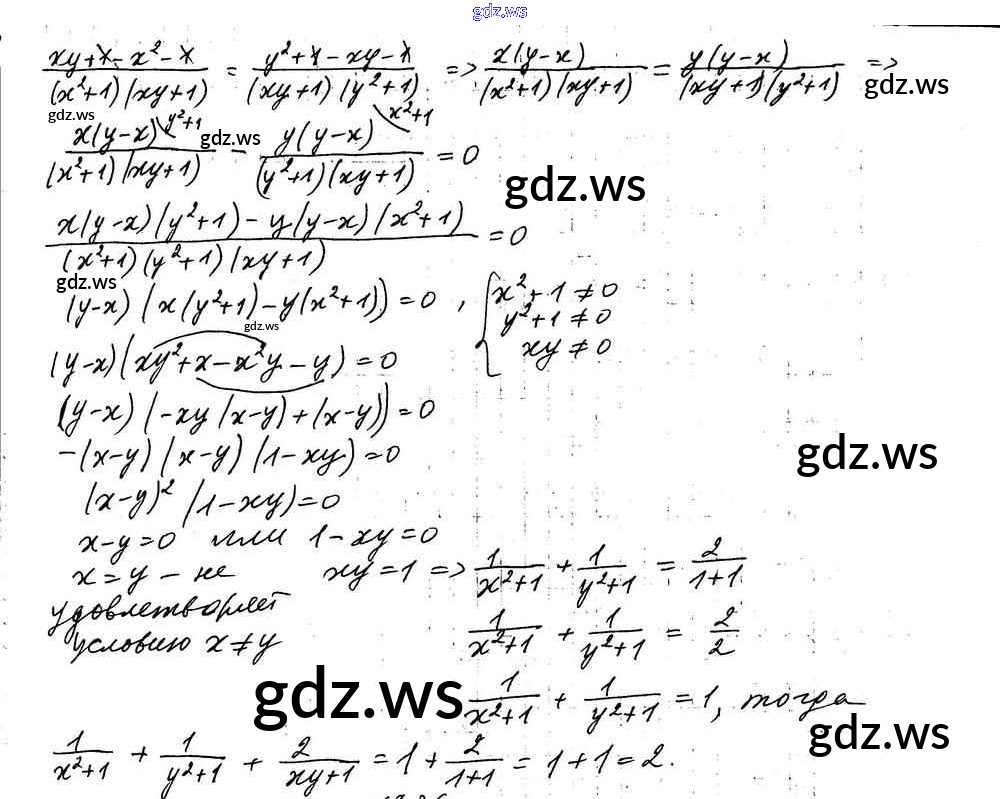 gdz.ws
(xy+x-x²-x)/((x²+1)(xy+1)) = (y²+1-xy-1)/((xy+1)(y²+1)) => x(y-x)/((x²+1)(xy+1)) = y(y-x)/((xy+1)(y²+1)) =>
gdz.ws
gdz.ws
x(y-x)\y²+1/((x²+1)(xy+1)) - y(y-x)\x²+1/((y²+1)(xy+1)) = 0
gdz.ws
gdz.ws
(x(y-x)(y²+1)-y(y-x)(x²+1))/((x²+1)(y²+1)(xy+1)) = 0
gdz.ws
(y-x)(x(y²+1)-y(x²+1))=0, { x²+1≠0
y²+1≠0
xy≠0
gdz.ws
(y-x)(xy²+x-x²y-y)=0
(y-x)(-xy(x-y)+(x-y))=0
-(x-y)(x-y)(1-xy)=0
gdz.ws
(x-y)²(1-xy)=0
x-y=0 или 1-xy=0
x=y - не xy=1 => 1/(x²+1) + 1/(y²+1) = 2/(1+1)
удовлетворяет
условию x≠y 1/(x²+1) + 1/(y²+1) = 2/2
gdz.ws
1/(x²+1) + 1/(y²+1) = 1, тогда
gdz.ws
1/(x²+1) + 1/(y²+1) + 2/(xy+1) = 1 + 2/(1+1) = 1+1=2.